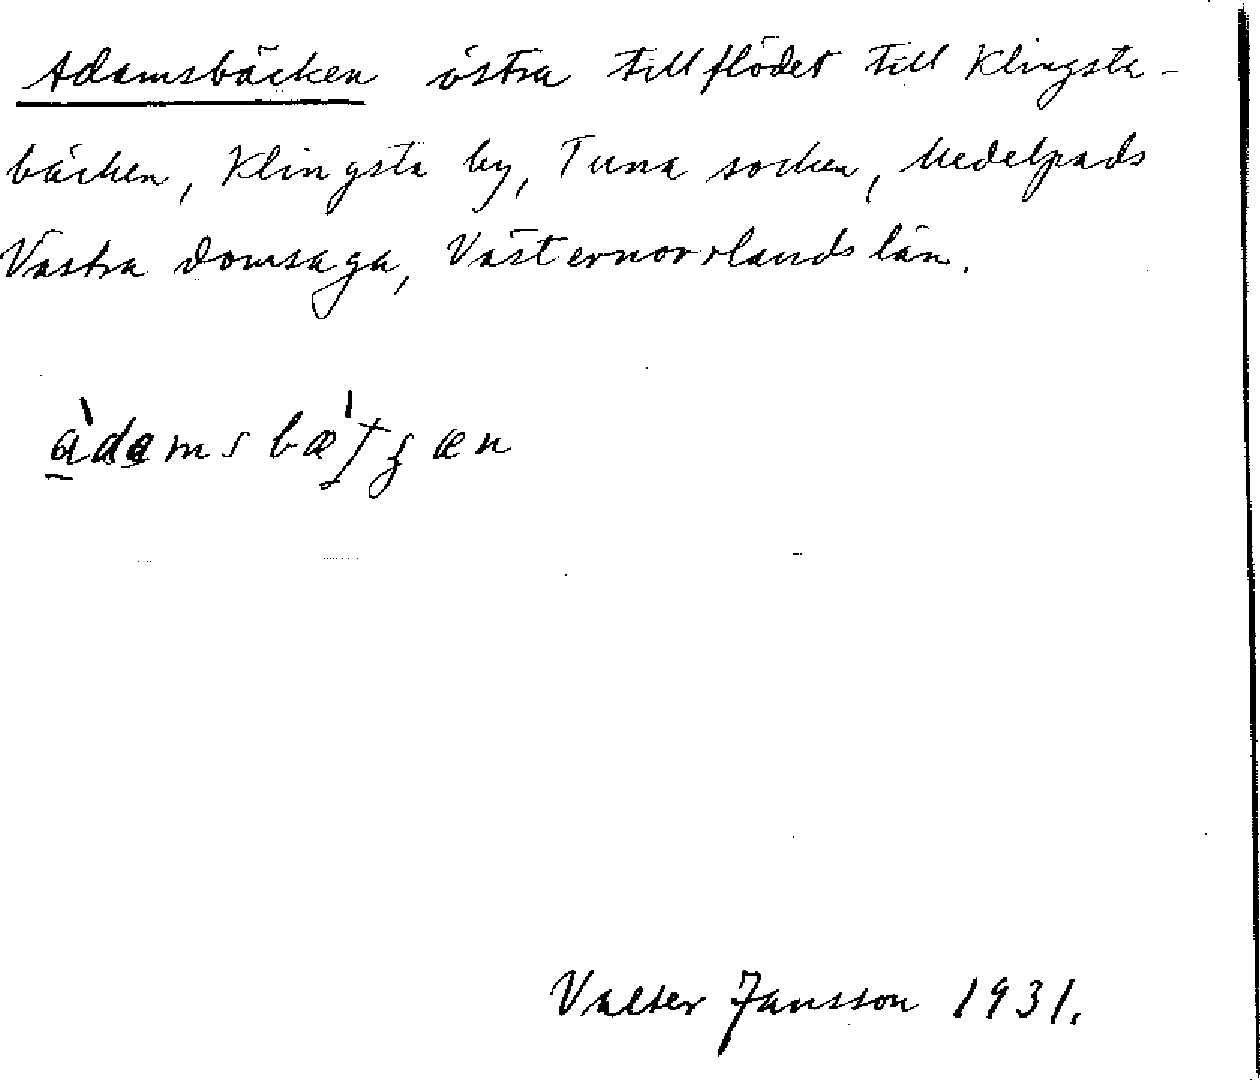 Adamsbäcken östra tillflödet till Klingsta-
bäcken, Klingsta by, Tuna socken, Medelpads
Västra domsaga, Västernorrlands län.
Valter Jansson 1931.